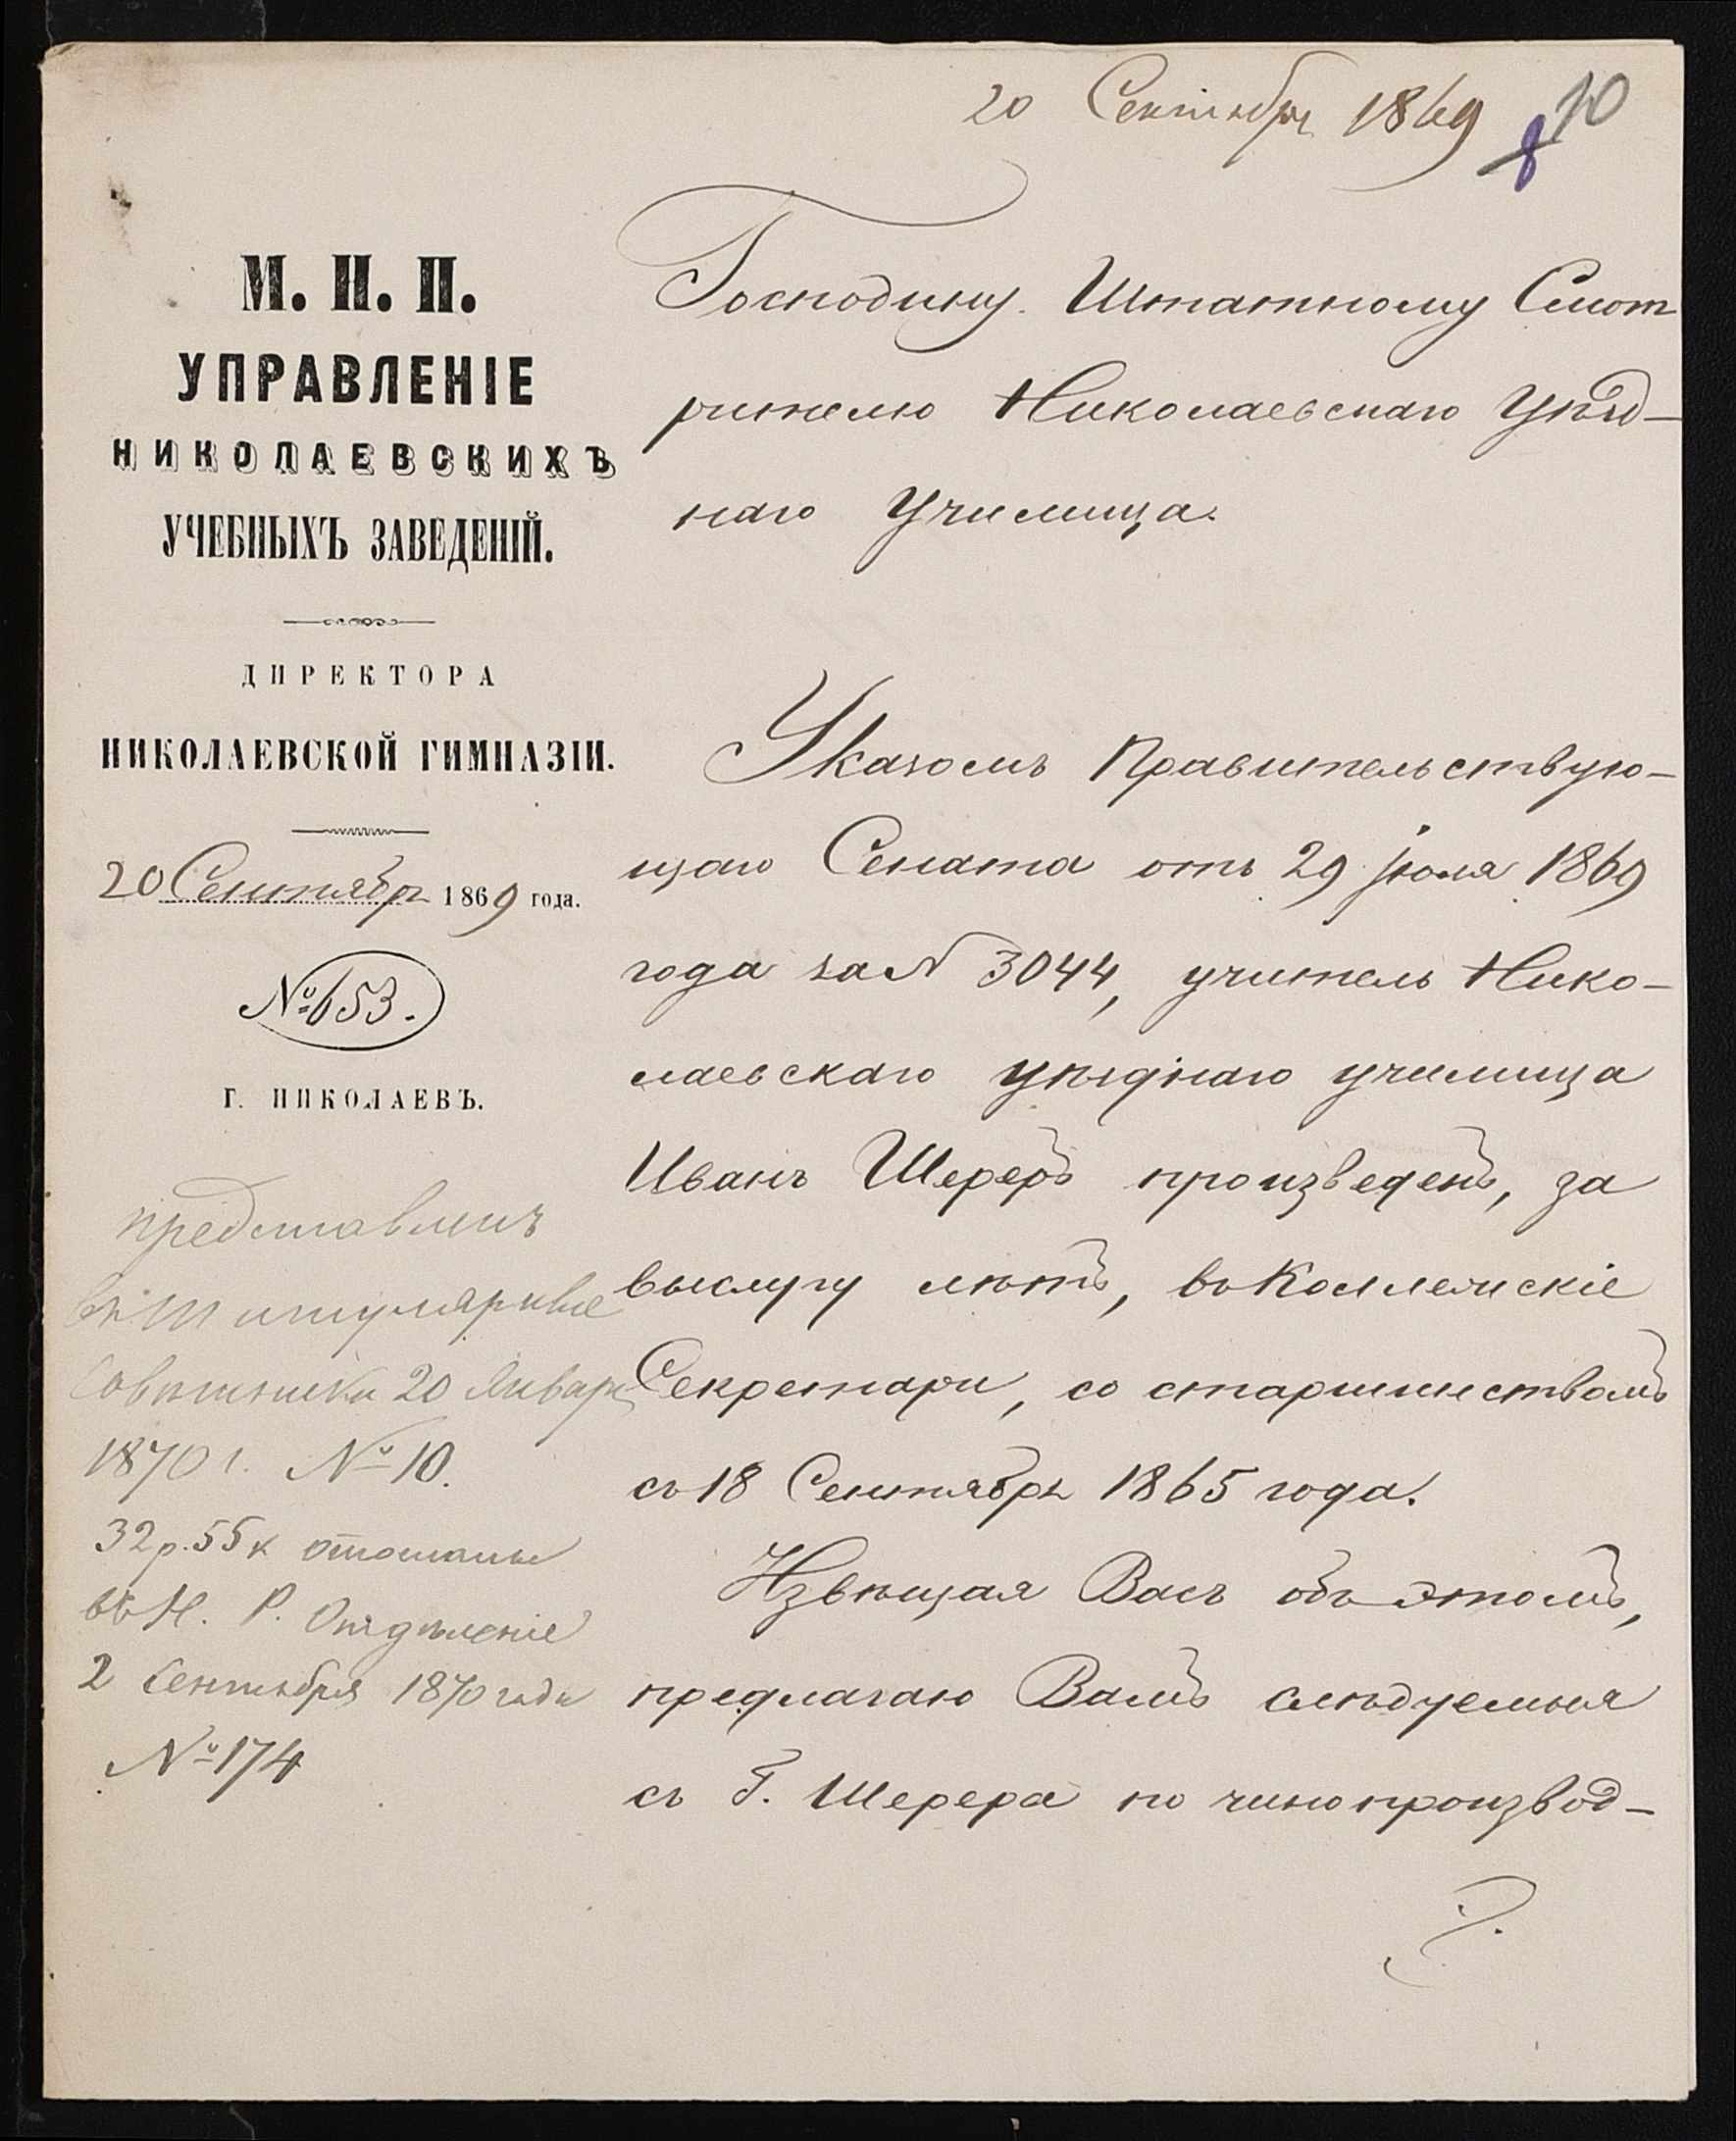 20 Сентября 1869
8 10
М. Н. П.
УПРАВЛЕНІЕ
НИКОЛАЕВСКИХЪ
УЧЕБНЫХЪ ЗАВЕДЕНІЙ.
ДИРЕКТОРА
НИКОЛАЕВСКОЙ ГИМНАЗІИ.
20 Сентября 1869 года.
№ 653.
Г. НИКОЛАЕВЪ.
представленъ
въ Титулярные
Совѣтники 20 Января
1870 г. № 10.
32 р. 55 к отосланы
въ Н. Р. Отдѣленіе
2 Сентября 1870 года
№ 174
Господину Штатному Смот
рителю Николаевскаго Уѣзд-
наго Училища.
Указомъ Правительствую-
щаго Сената отъ 29 Іюля 1869
года за N 3044, учитель Нико-
лаевскаго уѣзднаго училища
Иванъ Шереръ произведенъ, за
выслугу лѣтъ, въ Коллежскіе
Секретари, со старшинствомъ
съ 18 Сентября 1865 года.
Извѣщая Васъ объ этомъ,
предлагаю Вамъ слѣдуемыя
съ Г. Шерера по чинопроизвод-